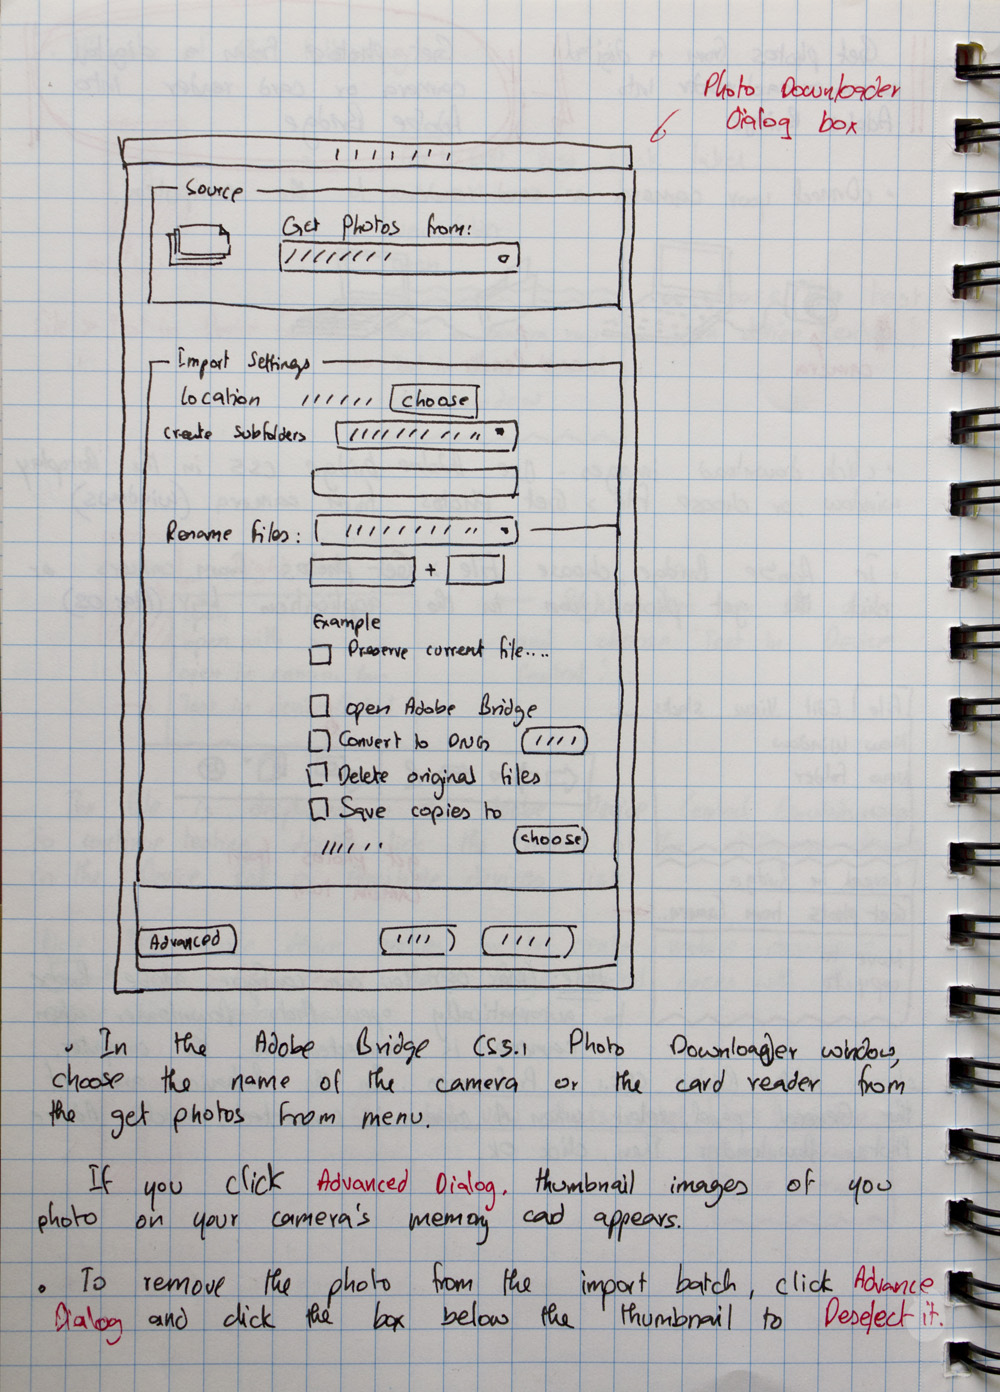 Photo Downloader
Dialog box
Source
Get Photos from:
Import Settings
Location choose
Create Subfolders
Rename Files:
+
Example
Preserve current file....
open Adobe Bridge
Convert to DNG
Delete original files
Save copies to
choose
Advanced
• In the Adobe Bridge CS5.1 Photo Downloader window,
choose the name of the camera or the card reader from
the get photos from menu.
If you click Advanced Dialog, thumbnail images of you
photo on your camera's memory cad appears.
• To remove the photo from the import batch, click Advance
Dialog and click the box below the thumbnail to Deselect it.